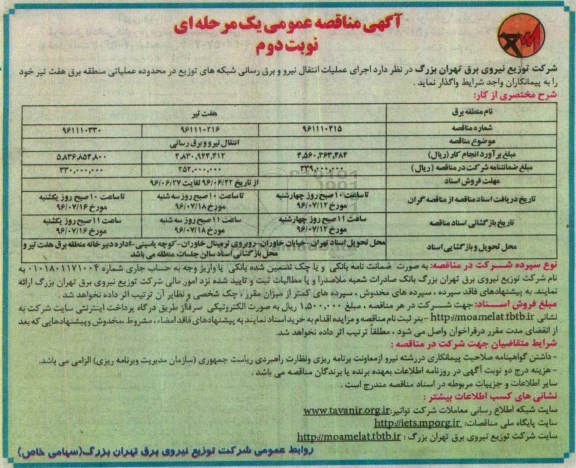 آگهی مناقصه عمومی یک مرحله ای
نوبت دوم
شرکت توزیع نیروی برق تهران بزرگ در نظر دارد اجرای عملیات انتقال نیرو و برق رسانی شبکه های توزیع در محدوده عملیاتی منطقه برق هفت تیر خود
را به پیمانکاران واجد شرایط واگذار نماید .
شرح مختصری از کار:
نام منطقه برق هفت تیر
شماره مناقصه ۹۶۱۱۱۰۲۱۵ ۹۶۱۱۱۰۲۱۶ ۹۶۱۱۱۰۳۳۰
موضوع مناقصه انتقال نیرو و برق رسانی
مبلغ برآورد انجام کار (ریال) ۴,۵۶۰,۲۶۳,۴۸۴ ۳,۸۳۰,۹۲۴,۴۱۲ ۵,۸۳۶,۸۵۴,۸۰۰
مبلغ ضمانتنامه شرکت در مناقصه (ریال) ۲۵۲,۰۰۰,۰۰۰ ۳۳۰,۰۰۰,۰۰۰
مهلت فروش اسناد از تاریخ ۹۶/۰۶/۲۲ لغایت ۹۶/۰۶/۲۷
تاریخ دریافت اسناد مناقصه از مناقصه گران تا ساعت ۱۰ صبح روز چهارشنبه تا ساعت ۱۰ صبح روز سه شنبه تا ساعت ۱۰ صبح روز یکشنبه
مورخ ۹۶/۰۷/۱۲ مورخ ۹۶/۰۷/۱۸ مورخ ۹۶/۰۷/۱۶
تاریخ بازگشائی اسناد مناقصه ساعت ۱۱ صبح روز چهارشنبه ساعت ۱۱ صبح روز سه شنبه ساعت ۱۱ صبح روز یکشنبه
مورخ ۹۶/۰۷/۱۲ مورخ ۹۶/۰۷/۱۸ مورخ ۹۶/۰۷/۱۶
محل تحویل و بازگشایی اسناد محل تحویل اسناد تهران - خیابان خاوران - روبروی ترمینال خاوران - کوچه یاسینی - اداره دبیرخانه منطقه برق هفت تیر و
محل بازگشائی اسناد سالن جلسات منطقه می باشد
نوع سپرده شرکت در مناقصه: به صورت ضمانت نامه بانکی و یا چک تضمین شده بانکی یا واریز وجه به حساب جاری شماره ۰۱۰۱۸۰۱۱۷۱۰۰۴ به
نام شرکت توزیع نیروی برق تهران بزرگ بانک صادرات شعبه ملاصدرا و یا مطالبات ثبت و تایید شده نزد امور مالی شرکت توزیع نیروی برق تهران بزرگ ارائه
نمایند. به پیشنهادهای فاقد سپرده ، سپرده های مخدوش ، سپرده های کمتر از میزان مقرر ، چک شخصی و نظایر آن ترتیب اثر داده نخواهد شد.
مبلغ فروش اسناد: جهت شرکت در هر مناقصه ، مبلغ ۱,۵۰۰,۰۰۰ ریال به صورت الکترونیکی صرفاً از طریق درگاه پرداخت اینترنتی سایت شرکت به
نشانی http://moamelat.tbtb.ir - بنر ثبت نام مناقصه و مزایده اقدام به خرید اسناد نمایند به پیشنهادهای فاقد امضاء ، مشروط ، مخدوش و پیشنهادهایی که بعد
از انقضای مدت مقرر در فراخوان واصل می شود ، مطلقا ترتیب اثر داده نخواهد شد.
شرایط متقاضیان جهت شرکت در مناقصه :
- داشتن گواهینامه صلاحیت پیمانکاری در رشته نیرو از معاونت برنامه ریزی ونظارت راهبردی ریاست جمهوری (سازمان مدیریت وبرنامه ریزی) الزامی می باشد.
- هزینه درج دو نوبت آگهی در روزنامه اطلاعات بعهده برنده یا برندگان مناقصه می باشد .
سایر اطلاعات و جزییات مربوطه در اسناد مناقصه مندرج است .
نشانی های کسب اطلاعات بیشتر :
سایت شبکه اطلاع رسانی معاملات شرکت توانیر: www.tavanir.org.ir
سایت پایگاه ملی مناقصات: http://iets.mporg.ir
سایت شرکت توزیع نیروی برق تهران بزرگ : http://moamelat.tbtb.ir
روابط عمومی شرکت توزیع نیروی برق تهران بزرگ (سهامی خاص)